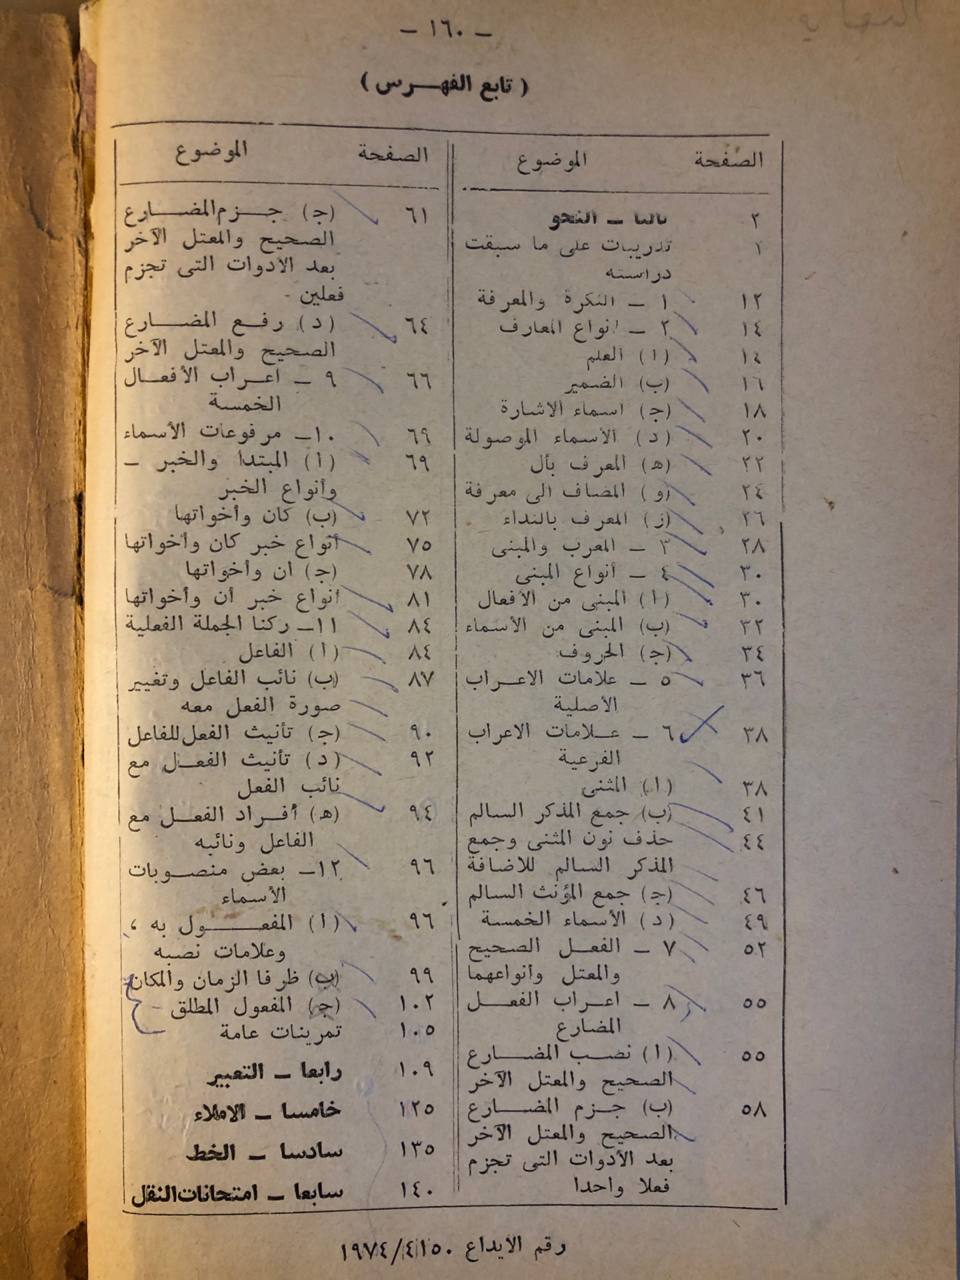 — ١٦٠ —
( تابع الفهــرس )
الصفحة الموضوع
٢ ثالثا — النحو
تدريبات على ما سبقت
دراسته
١٢ ١ — النكرة والمعرفة
١٤ ٢ — أنواع المعارف
١٤ (ا) العلم
١٦ (ب) الضمير
١٨ (ج) اسماء الاشارة
٢٠ (د) الأسماء الموصولة
٢٢ (ه) المعرف بأل
٢٤ (و) المضاف الى معرفة
٢٦ (ز) المعرف بالنداء
٢٨ ٣ — المعرب والمبنى
٣٠ ٤ — أنواع المبنى
٣٠ (ا) المبنى من الأفعال
٣٢ (ب) المبنى من الأسماء
٣٤ (ج) الحروف
٣٦ ٥ — علامات الاعــراب
الأصلية
٣٨ ٦ — عــلامات الاعراب
الفرعية
٣٨ (ا) المثنى
٤١ (ب) جمع المذكر السالم
٤٤ حذف نون المثنى وجمع
المذكر السالم للاضافة
٤٦ (ج) جمع المؤنث السالم
٤٩ (د) الأسماء الخمسة
٥٢ ٧ — الفعل الصحيح
والمعتل وأنواعهما
٥٥ ٨ — اعراب الفعــل
المضارع
٥٥ (ا) نصب المضــارع
الصحيح والمعتل الآخر
٥٨ (ب) جزم المضــارع
الصحيح والمعتل الآخر
بعد الأدوات التى تجزم
فعلا واحدا
الصفحة الموضوع
٦١ (ج) جــزم المضــارع
الصحيح والمعتل الآخر
بعد الادوات التى تجزم
فعلين
٦٤ (د) رفــع المضــارع
الصحيح والمعتل الآخر
٦٦ ٩ — اعــراب الأفعــال
الخمسة
٦٩ ١٠— مرفوعات الأسماء
٦٩ (ا) المبتدا والخبر —
وأنواع الخبر
٧٢ (ب) كان وأخواتها
٧٥ أنواع خبر كان وأخواتها
٧٨ (ج) ان وأخواتها
٨١ أنواع خبر ان وأخواتها
٨٤ ١١— ركنا الجملة الفعلية
٨٤ (ا) الفاعل
٨٧ (ب) نائب الفاعل وتغيير
صورة الفعل معه
٩٠ (ج) تأنيث الفعل للفاعل
٩٢ (د) تأنيث الفعــل مع
نائب الفعل
٩٤ (ه) أفــراد الفعــل مع
الفاعل ونائبه
٩٦ ١٢— بعض منصــوبات
الأسماء
٩٦ (ا) المفعــول به ،
وعلامات نصبه
٩٩ (ب) ظرفا الزمان والمكان
١٠٢ (ج) المفعول المطلق
١٠٥ تمرينات عامة
١٠٩ رابعا — التعبير
١٢٥ خامسا — الاملاء
١٣٥ سادسا — الخط
١٤٠ سابعا — امتحانات النقل
رقم الايداع ١٩٧٤/٤١٥٠